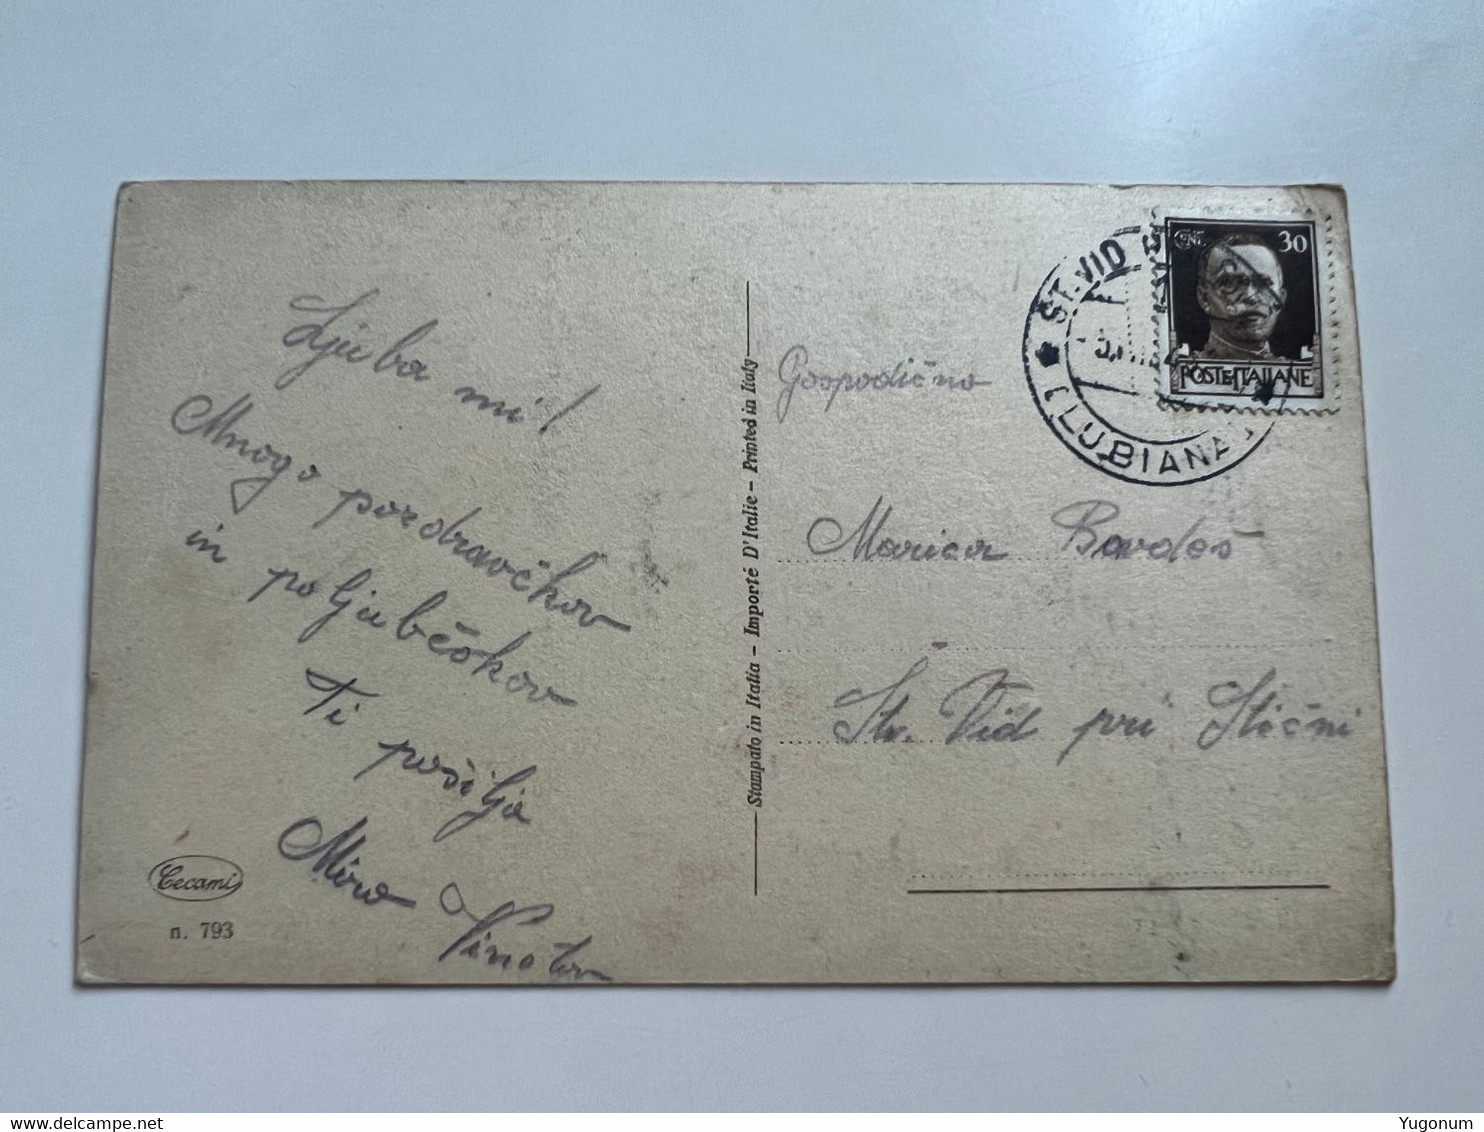 Ljuba mi!
Mnogo pozdravčkov
in poljubčkov
Ti pošilja
Miro
Cecami
n. 793
Stampato in Italia - Importé D'Italie - Printed in Italy
CENT. 30
POSTE ITALIANE
ST. VID
(LUBIANA)
Gospodična
Marica Bavdeš
Št. Vid pri Stični
Yugonum
delcampe.net